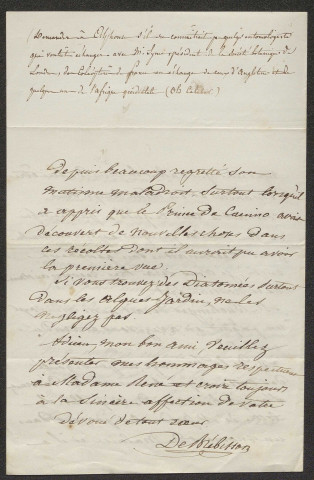 Demander à Alphonse s'il ne connaîtrait pas quelqu'entomologiste
qui voulut échanger avec Mr président de la société botanique de
Londres, des Coléoptères de france en échange de ceux d'Angleterre et de
quelques uns de l'afrique
depuis beaucoup regretté son
mutisme maladroit, surtout lorsqu'il
a appris que le Prince de Canino avait
découvert de nouvelles choses dans
ces récoltes dont il aurait pu avoir
la première vue.
Si vous trouvez des Diatomées surtout
dans les algues Jardin, ne les
négligez pas.
Adieu, mon bon ami, veuillez
présenter mes hommages respectueux
à Madame René et croire toujours
à la Sincère affection de votre
dévoué de tout cœur
De Brébisson